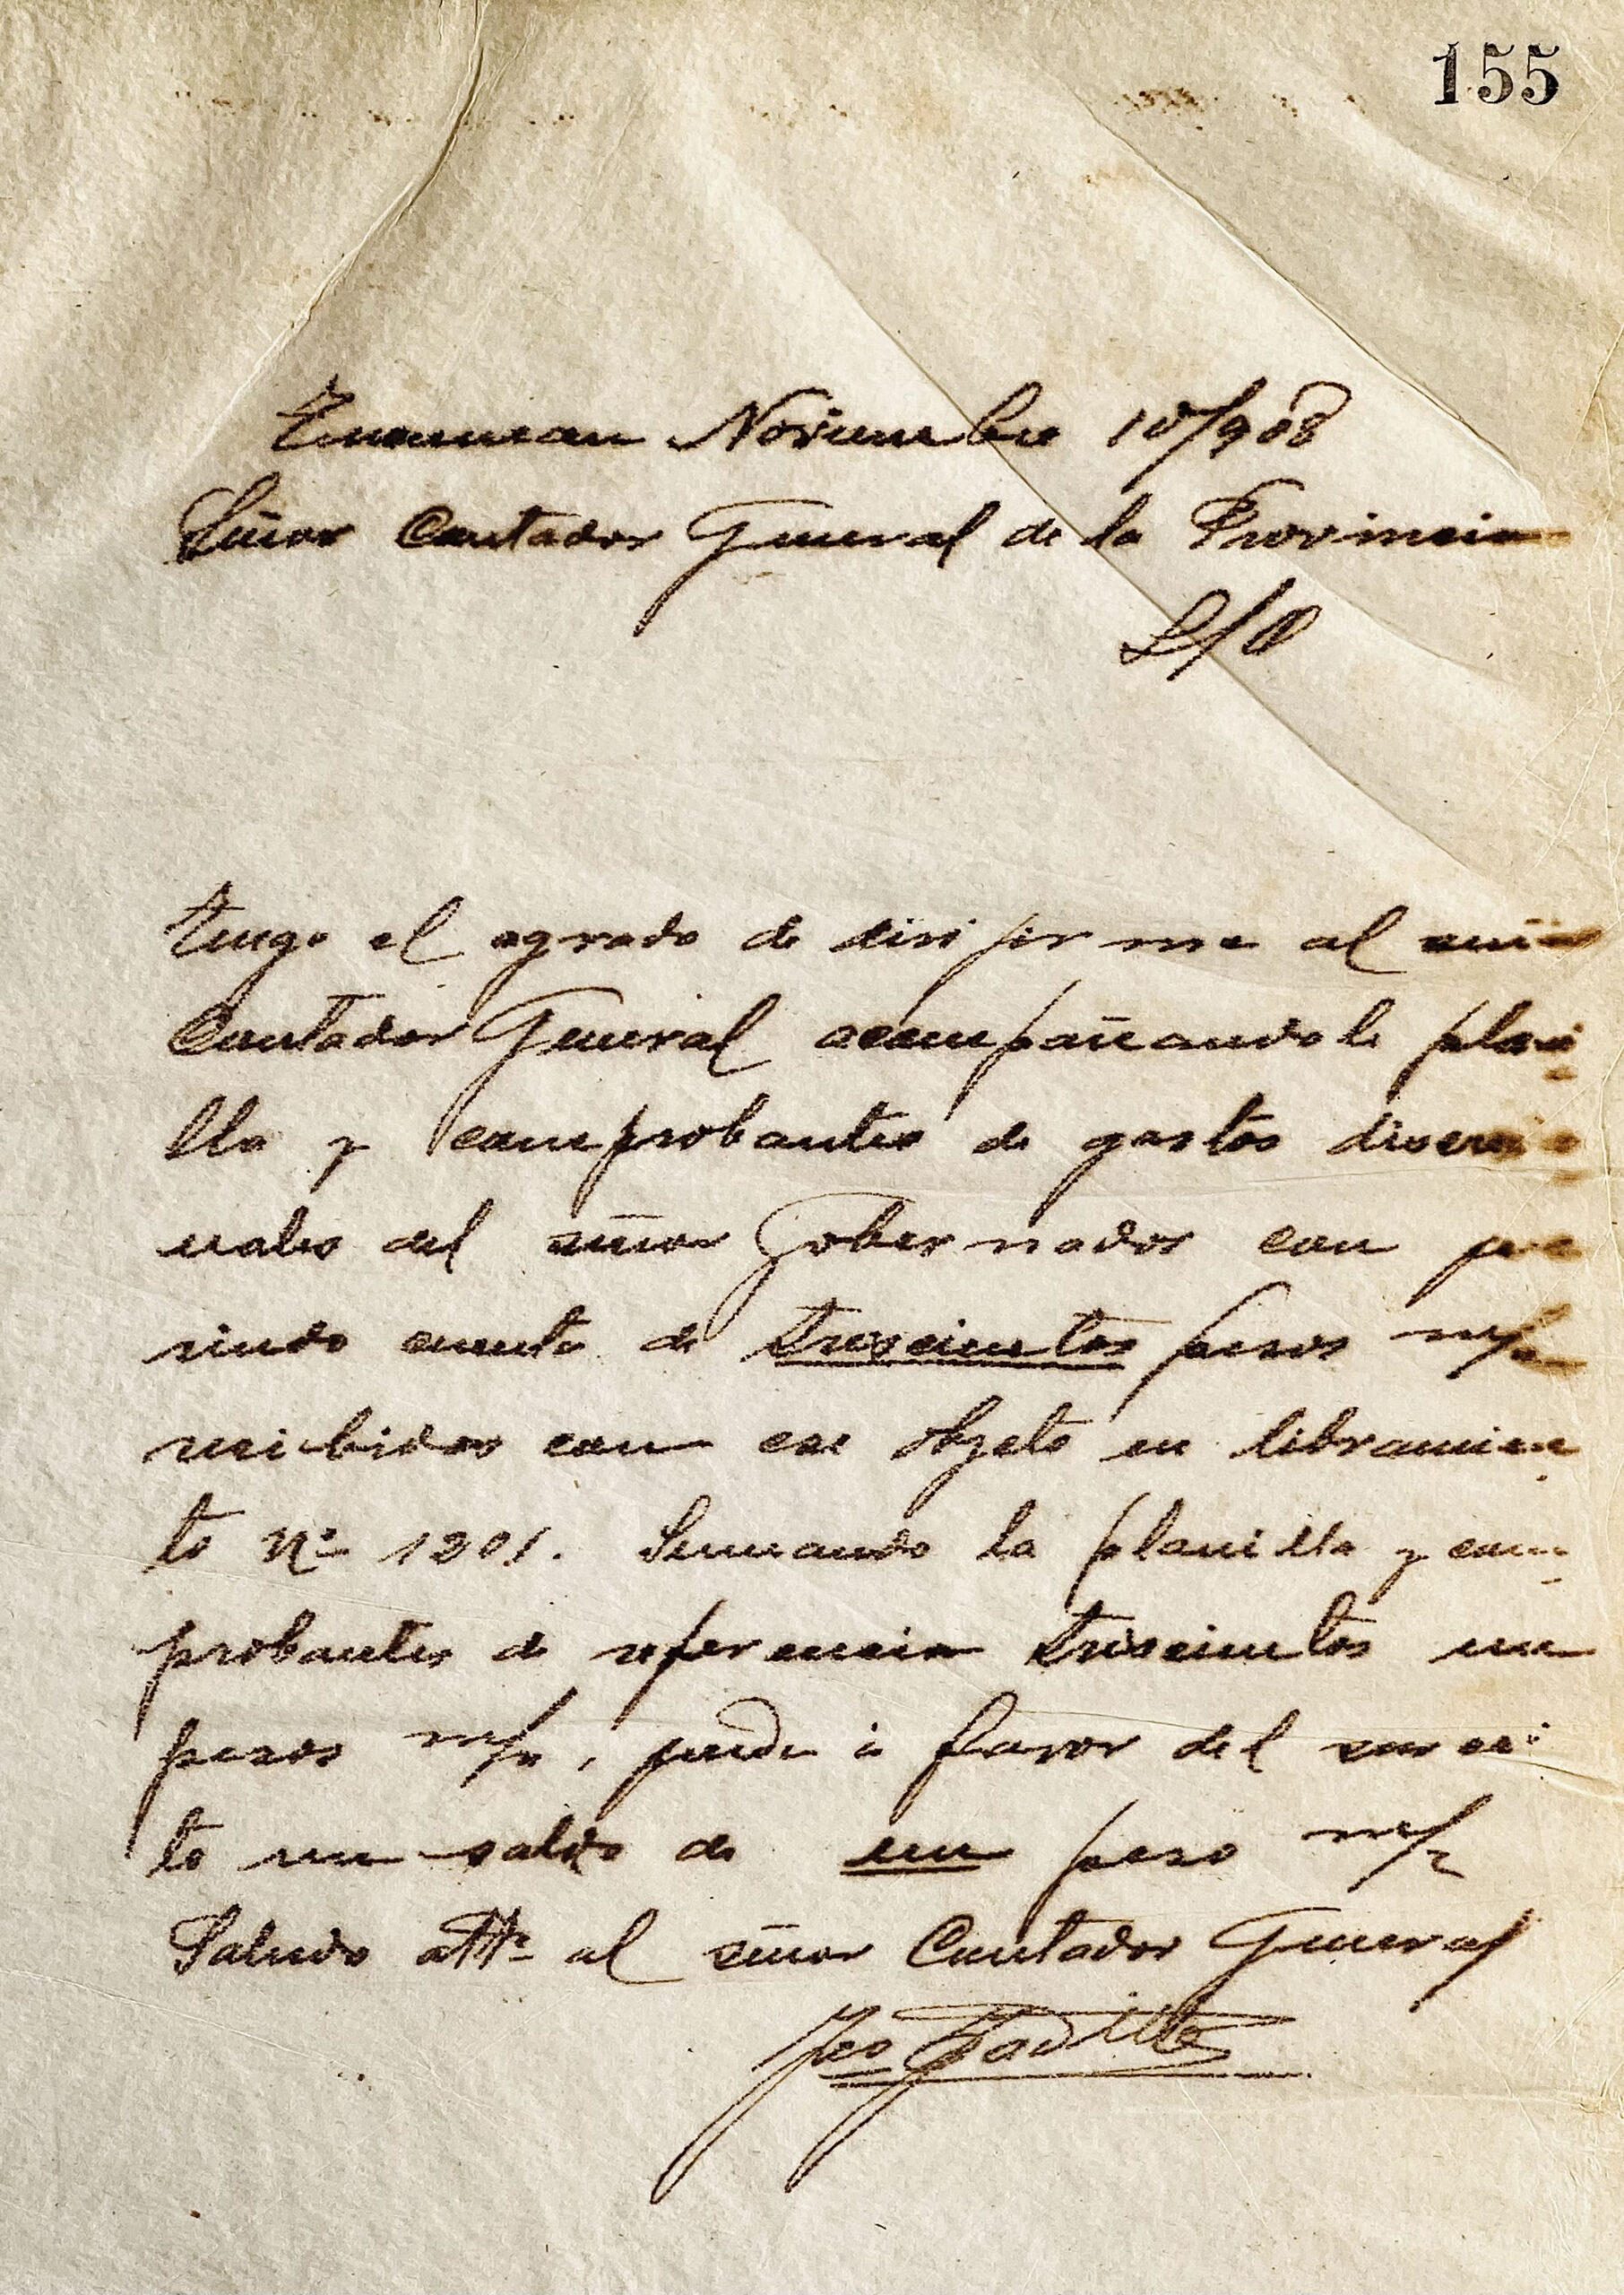 155
Tucuman Noviembre 10/908
Señor Contador General de la Provincia
S/D
Tengo el agrado de dirijirme al señor
Contador General acompañandole plani
lla y comprobantes de gastos discrecio
nales del señor Gobernador con que
rindo cuenta de trescientos pesos m/n
recibidos con ese objeto en libramien
to Nº 1201. Sumando la planilla y com
probantes de referencia trescientos un
pesos m/n, queda á favor del suscri
to un saldo de un peso m/n
Saludo atto al señor Contador General
Padilla